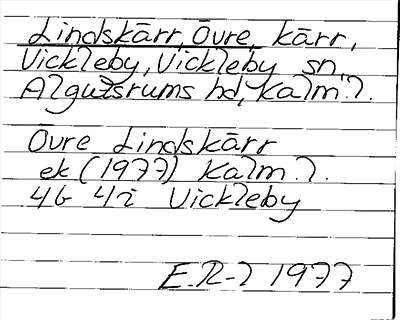 Lindskärr, Övre, kärr,
Vickleby, Vickleby sn,
Algutsrums hd, Kalm. l.
Övre Lindskärr
ek (1977) Kalm. l.
4G 4i Vickleby
E.R-l 1977